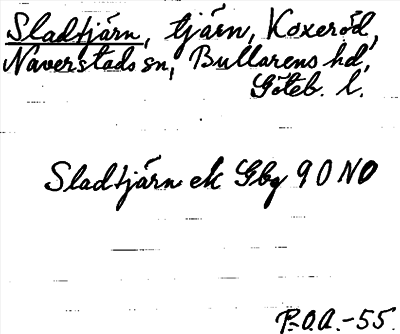 Sladtjärn, tjärn, Koxeröd,
Naverstads sn, Bullarens hd,
Göteb. l.
Sladtjärn ek Gbg 90 NO
P.O.A.-55.